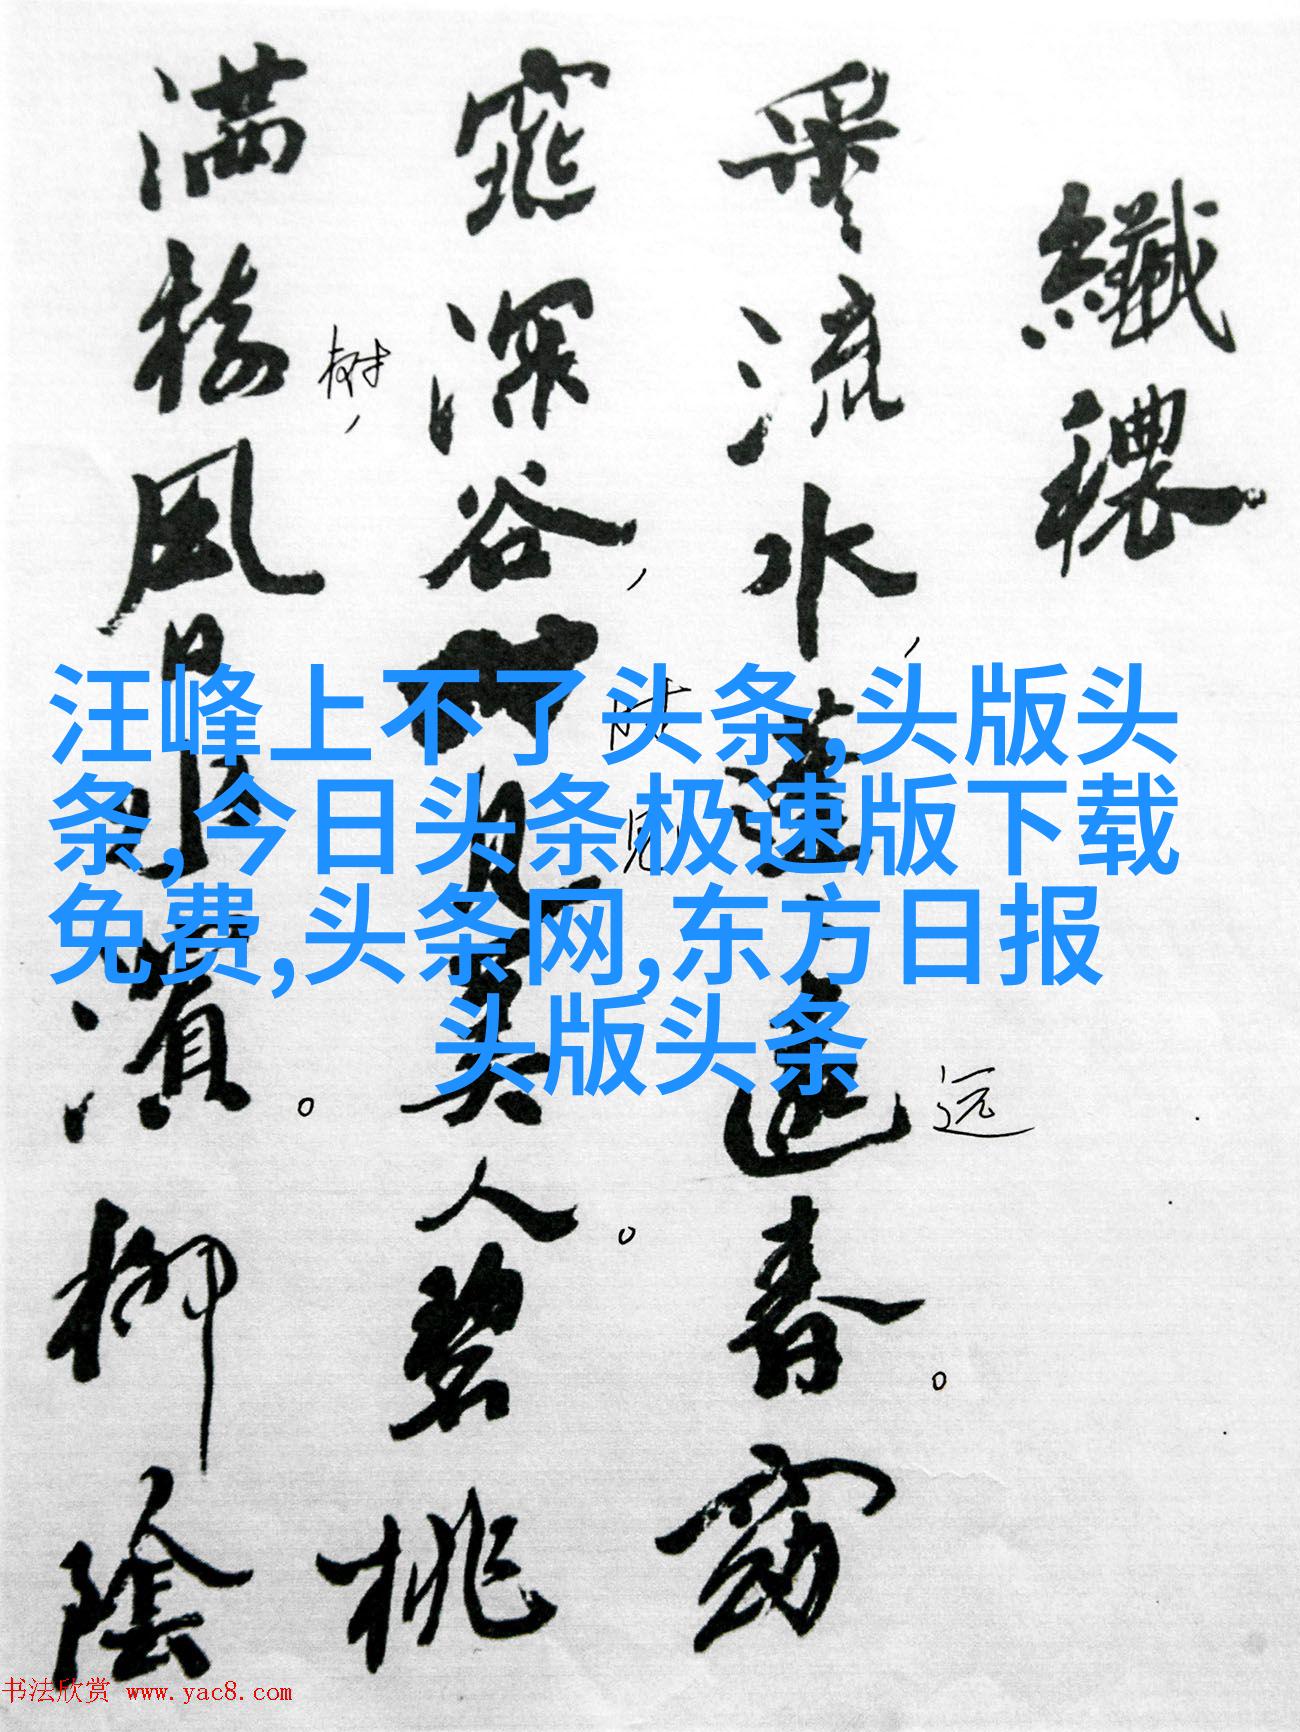 纖穠
采流水,蓬蓬遠春。窈
远
窕深谷,時見美人。碧桃
时
见
满樹,風日水濱。柳陰
树
汪峰上不了头条,头版头
条,今日头条极速版下载
免费,头条网,东方日报
头版头条
书法欣赏 www.yac8.com